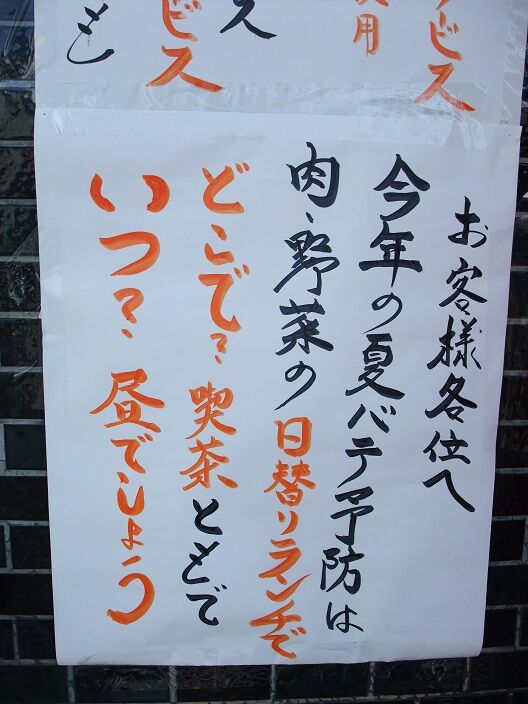 ービス
用
ス
ービス
とも
お客様各位へ
今年の夏バテ予防は
肉、野菜の日替りランチで
どこで？喫茶ともで
いつ？昼でしょう